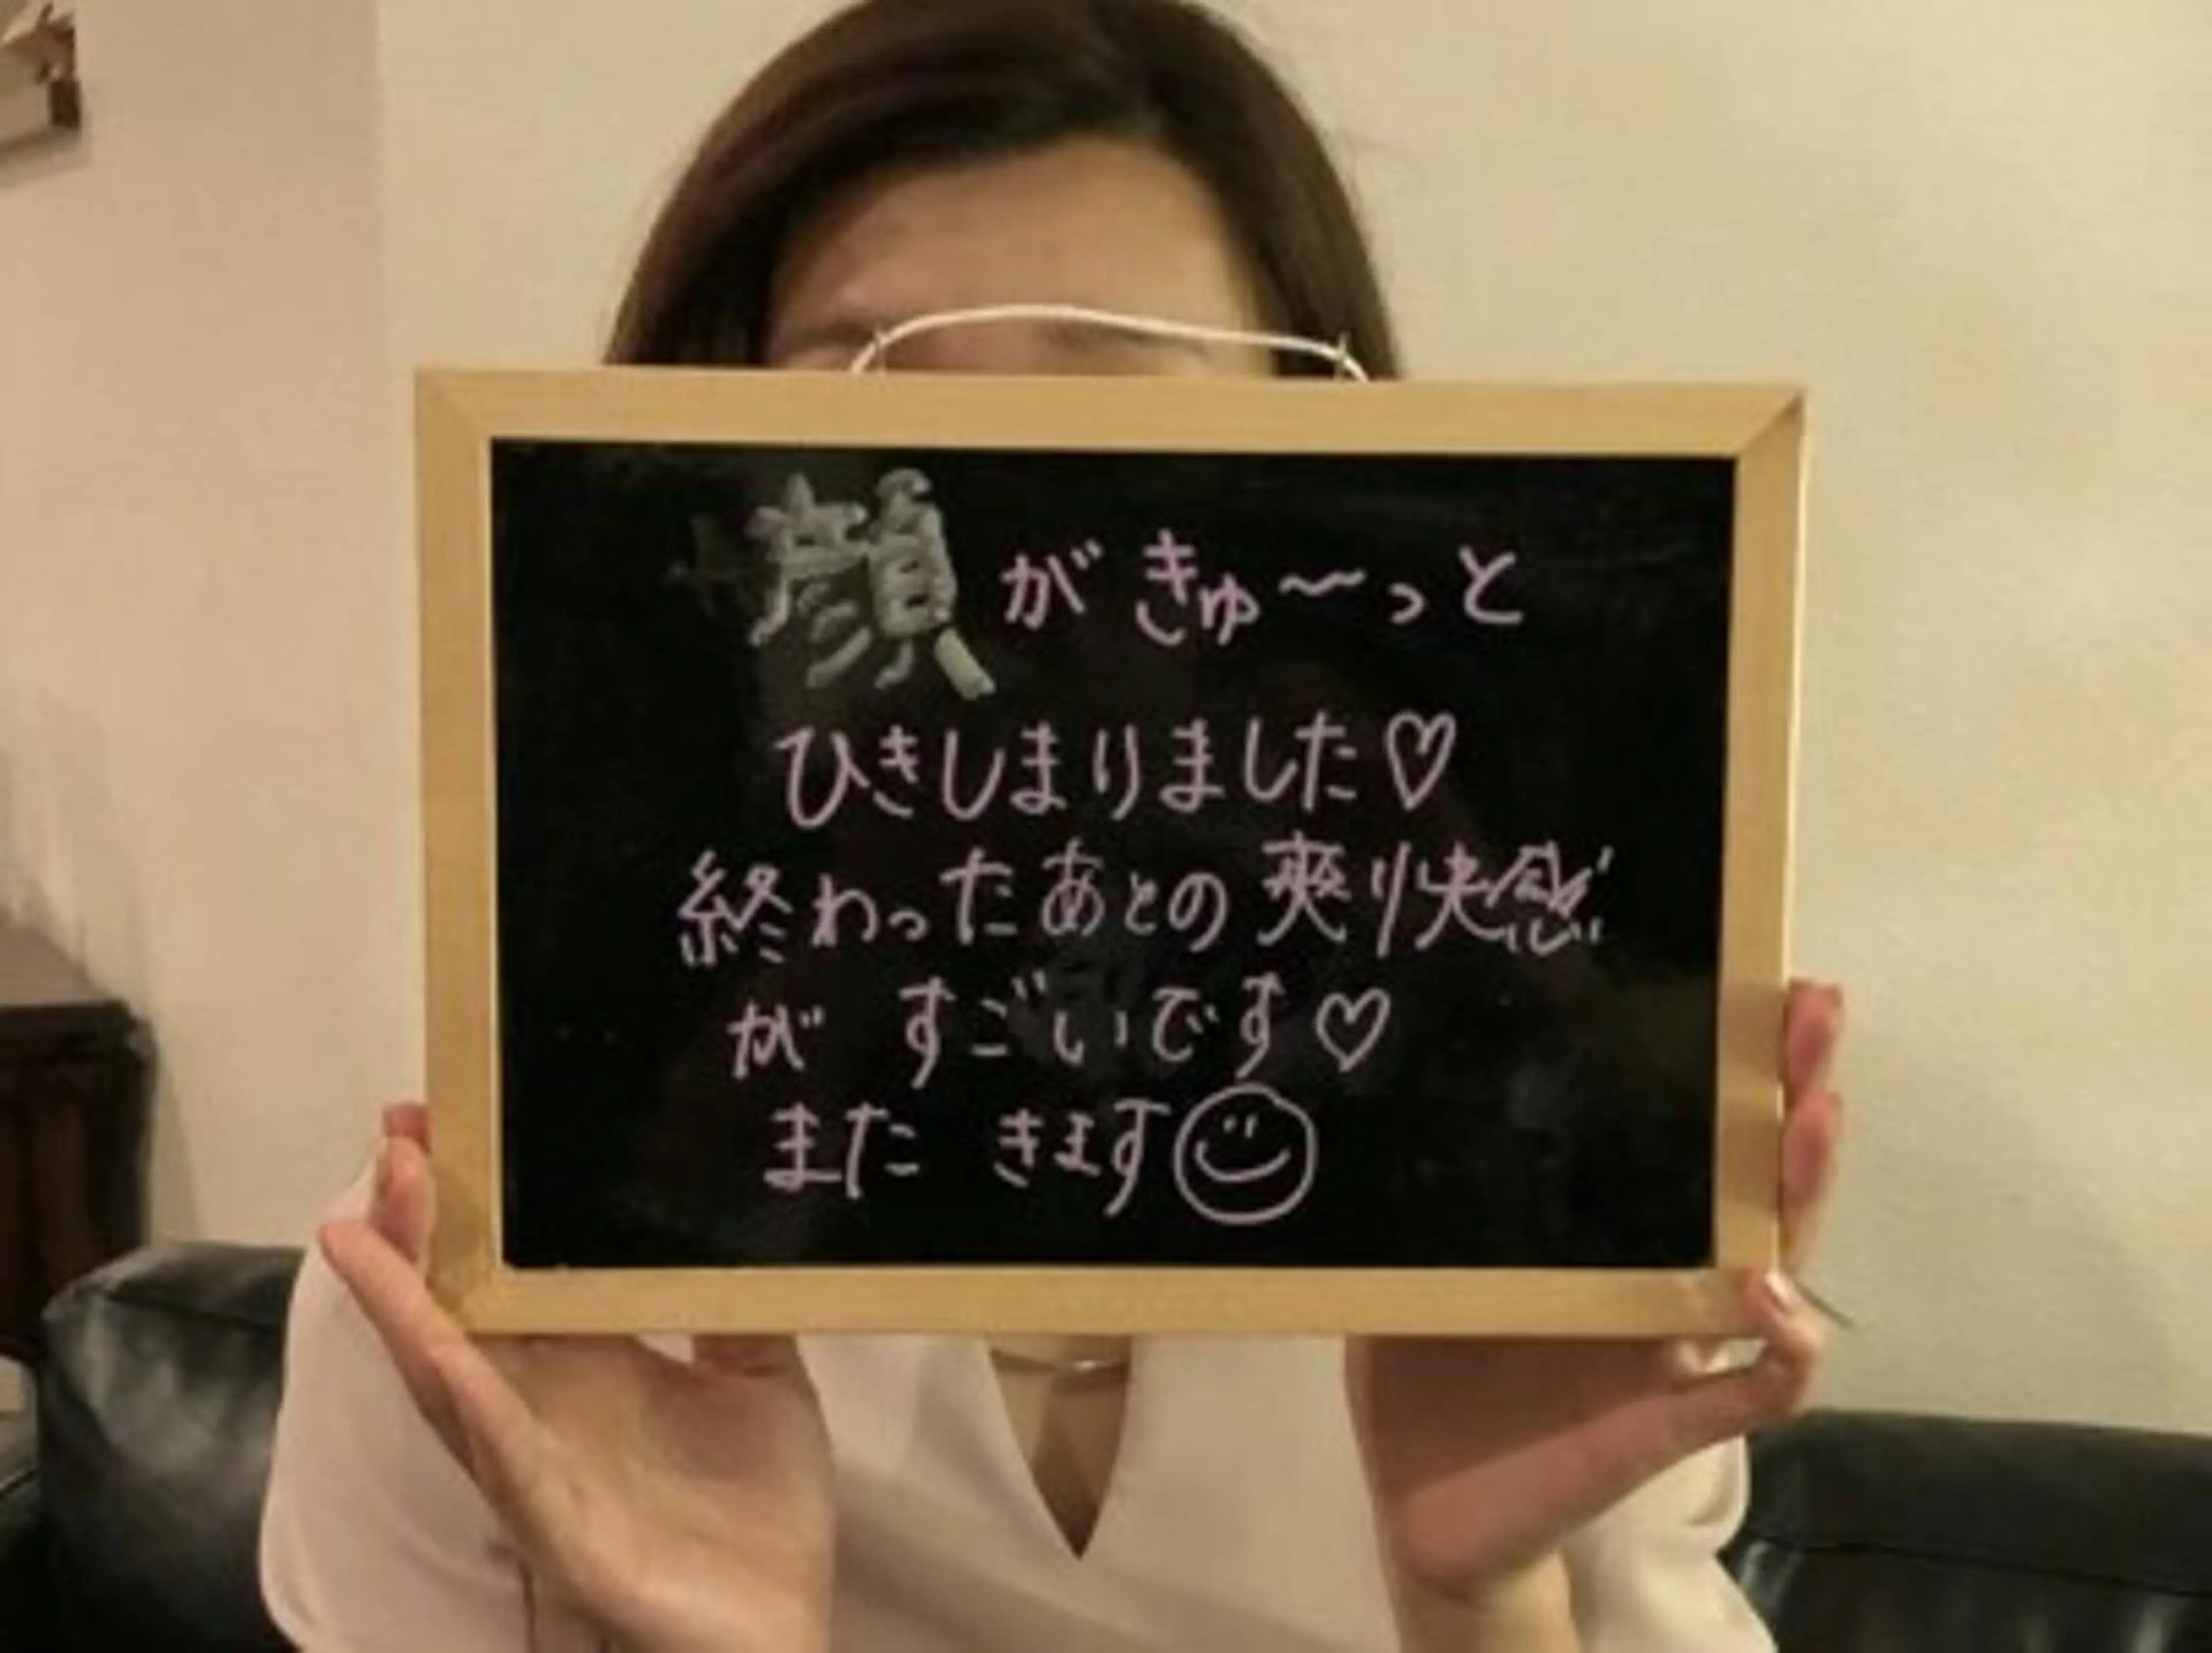 顔がきゅ〜っと
ひきしまりました♡
終わったあとの爽快感
がすごいです♡
またきます☺